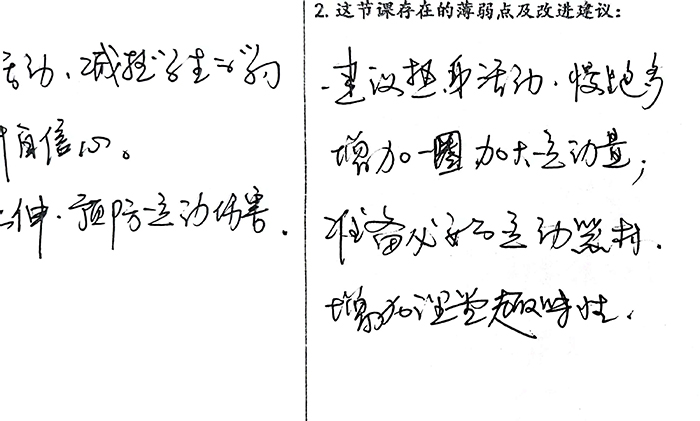 活动、减轻学生心的
自信心。
拉伸、预防运动伤害.
2. 这节课存在的薄弱点及改进建议：
建议热身活动、慢跑多
增加一圈加大运动量；
准备必要的运动器材.
增加课堂趣味性.